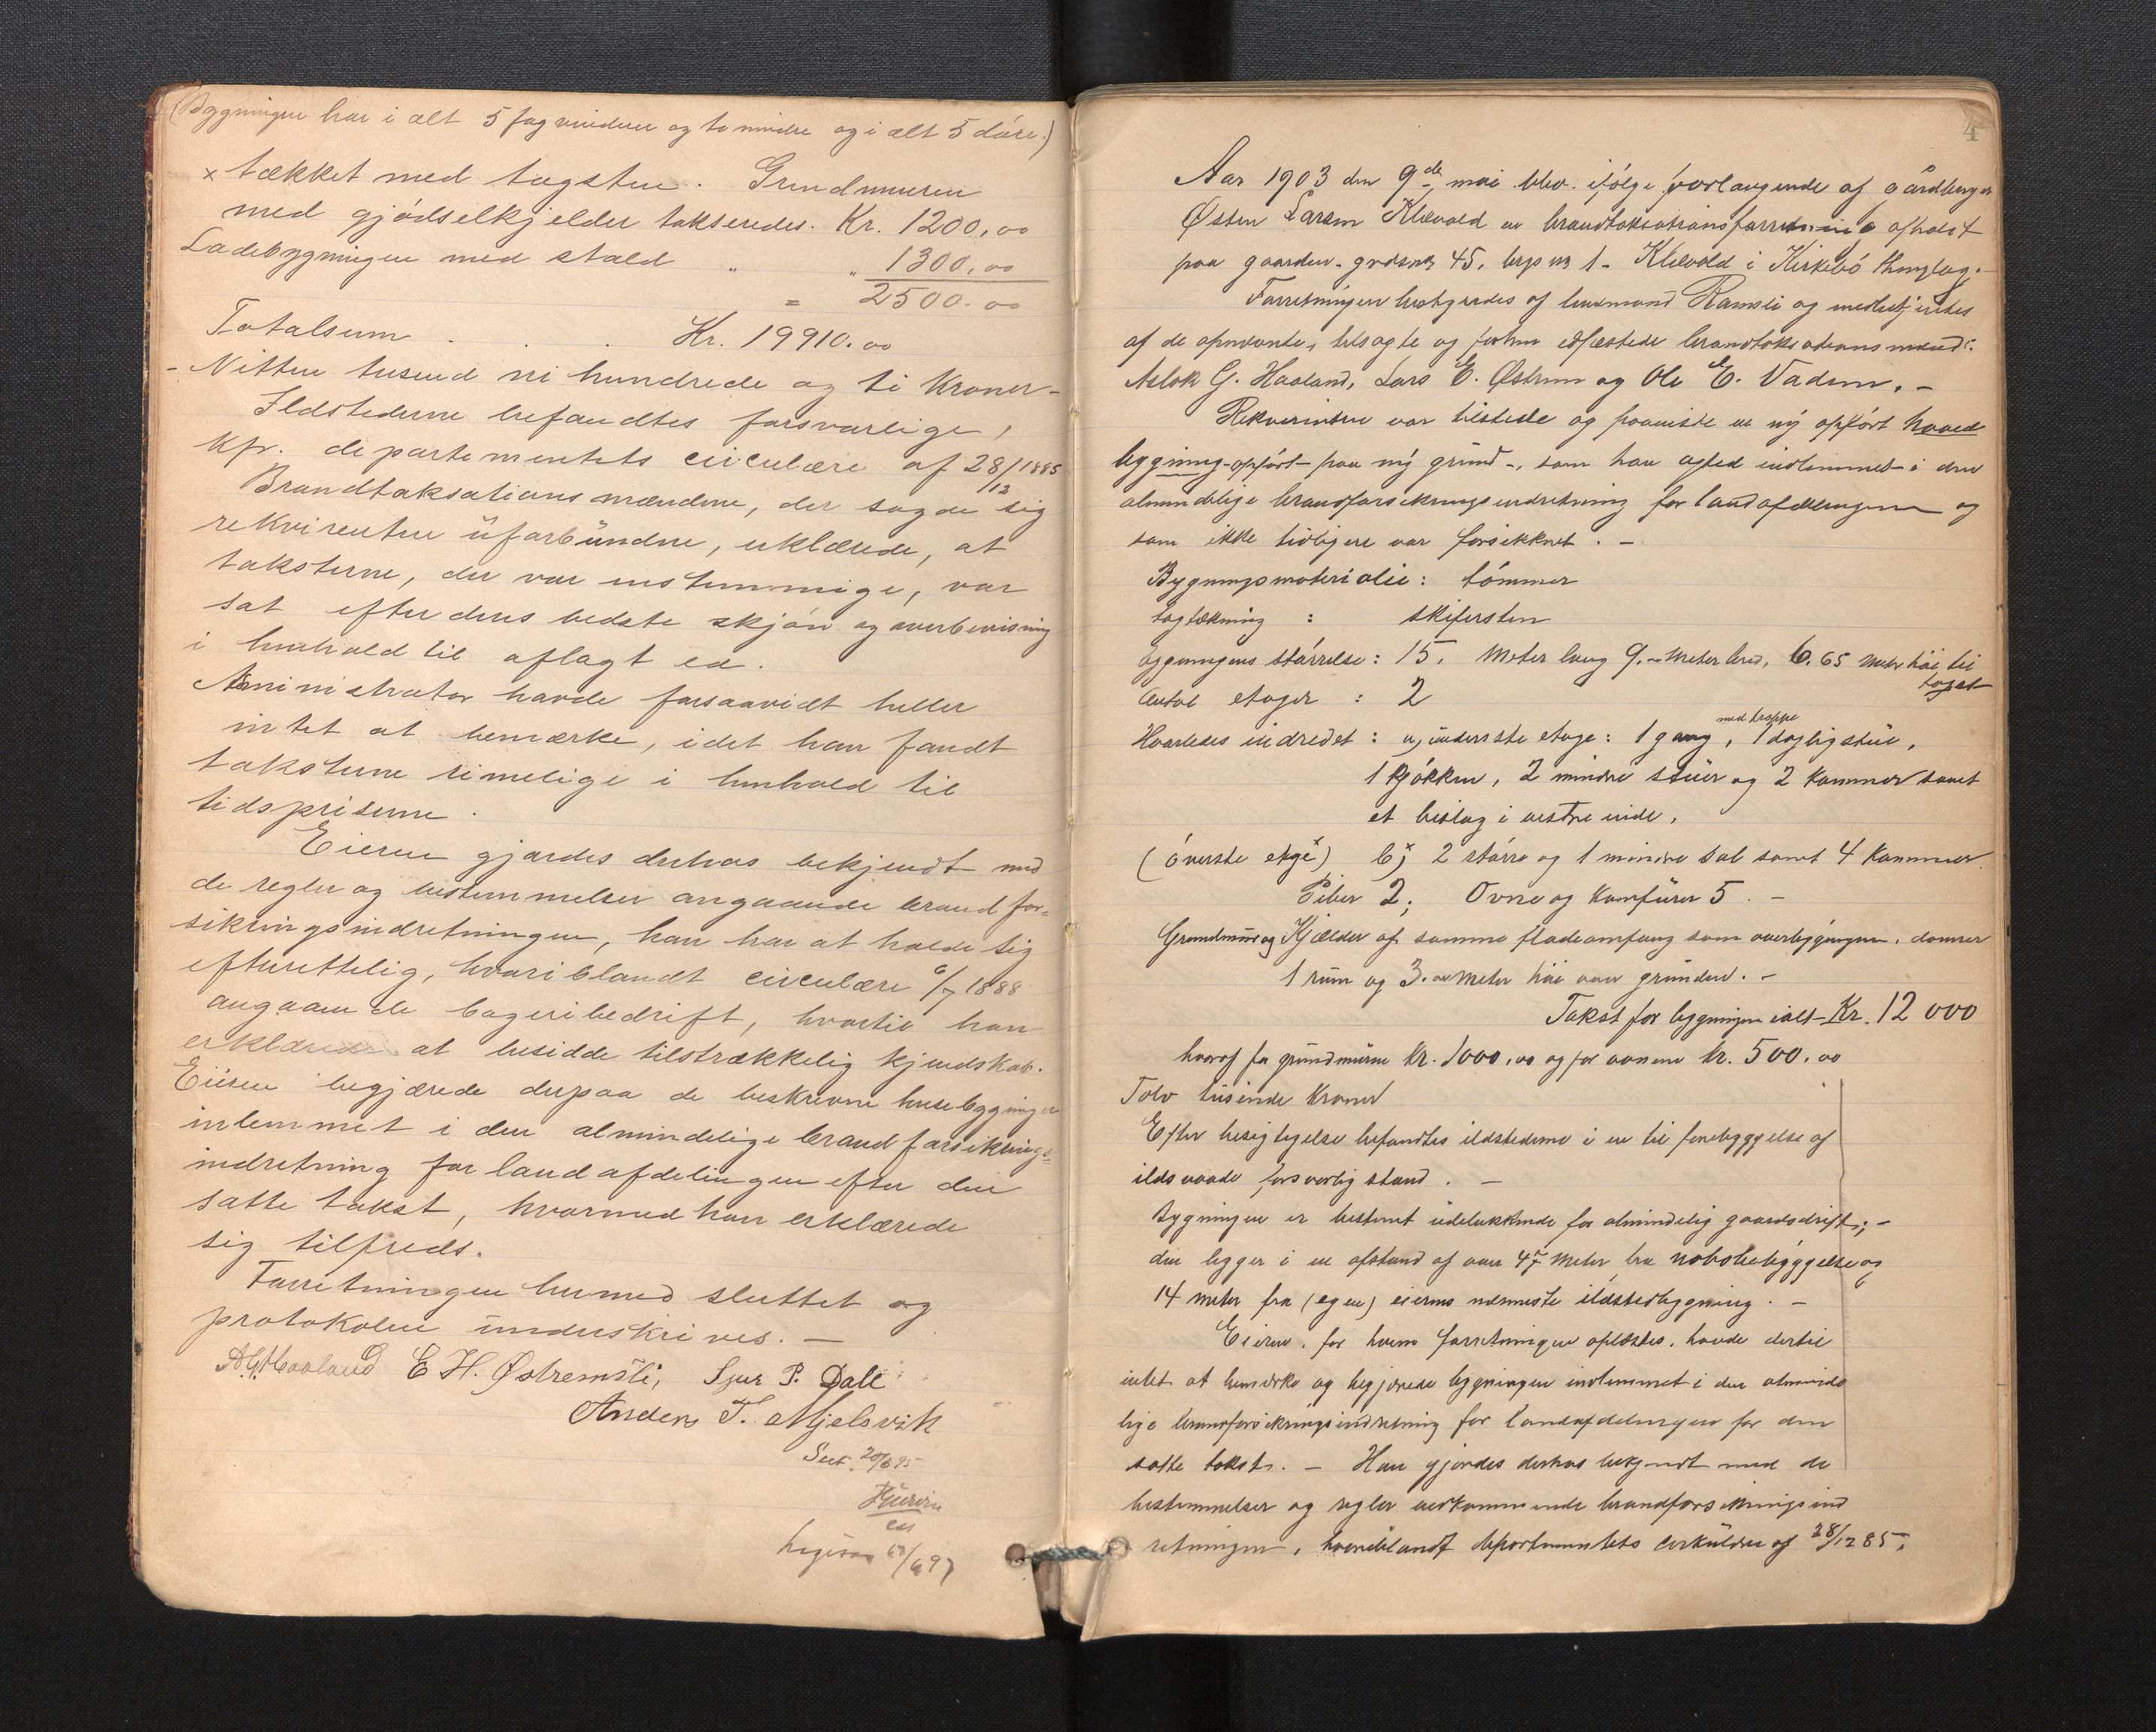 (Bygningen har i alt 5 fag vinduer og to mindre og i alt 5 döre.)
x tækket med tagsten. Grundmuren
med gjödselkjelder takseredes. Kr. 1200,00
Ladebygningen med stald " " 1300,00
= 2500.00
Totalsum . . . Kr. 19910.00
- Nitten tusend ni hundrede og ti Kroner -
Ildstederne befandtes forsvarlige,
kfr. departementets circulære af 28/12 1885
Brandtaksationsmændene, der sagde sig
rekvirenten uforbundne, erklærede, at
taksterne, der var enstemmige, var
sat efter deres bedste skjön og overbevisning
i henhold til aflagt ed.
Administrator havde forsaavidt heller
intet at bemærke, idet han fandt
taksterne rimelige i henhold til
tidspriserne.
Eieren gjordes derhos bekjendt med
de regler og bestemmelser angaaende brandfor=
sikringsindretningen, han har at holde sig
efterrettelig, hvoriblandt circulære 6/7 1888
angaaende bageribedrift, hvortil han
erklærede at besidde tilstrækkelig kjendskab.
Eieren begjærede derpaa de beskrevne husebygninger
inlemmet i den almindelige brandforsikrings=
indretning for landafdelingen efter den
satte takst, hvormed han erklærede
sig tilfreds.
Forretningen hermed sluttet og
protokolen underskrives. —
A.G. Haaland E H. Østremsli, Sjur P. Dale
Anders T. Mjelsvik
Seet 20/6 95
4
Aar 1903 den 9de mai blev ifölge forlangende af gårdbruger
Østen Larsen Klævold en brandtaksationsforretning afholdt
paa gaarden gårdsnr 45, brgs nr 1 - Klævold i Kirkebö thinglag.
Forretningen bestyredes af lensmand Ramsli og medbetjentes
af de opnævnte, tilsagte og forhen edfæstede brandtaksationsmænd:
Aslak G. Haaland, Lars E. Østrem og Ole E. Vadem. -
Rekvirenten var tilstede og paaviste en ný opfört hoved
bygning - opfört paa ný grund -, som han agted indlemmet i den
almindelige brandforsikringsindretning for landafdelingen og
som ikke tidligere var forsikkret. -
Bygningsmateriale: tömmer
tagtækning : skifersten
bygningens störrelse: 15, meter lang 9,00 meter bred, 6.65 meter höi til
taget
Antal etager : 2
Hvorledes indredet : a, underste etage: 1 gang, med trappe 1 dagligstue,
1 kjökken, 2 mindre stuer og 2 kammer samt
et bislag i vestre ende.
(överste etage) b, 2 större og 1 mindre sal samt 4 kammer
Piber 2; Ovne og komfurer 5. -
Grundmur og Kjælder af samme fladeomfang som overbygningen, danner
1 rum og 3.00 meter höi over grunden. -
Takst for bygningen ialt Kr. 12 000
hvoraf for grundmuren Kr. 1000,00 og for ovnene Kr. 500,00
Tolv tusinde Kroner
Efter besigtigelse befandtes ildstederne i en til forebyggelse af
ildsvaade forsvarlig stand. -
Bygningen er bestemt udelukkende for almindelig gaardsdrift; -
den ligger i en afstand af over 47 meter fra nabobebyggelse og
14 meter fra (egen) eierens nærmeste ildstedbygning. -
Eieren, for hvem forretningen oplæstes, havde dertil
intet at bemærke og begjærede bygningen indlemmet i den alminde
lige brandforsikringsindretning for landafdelingen for den
satte takst. - Han gjordes derhos bekjendt med de
bestemmelser og regler vedkommende brandforsikringsind
retningen, hvoriblandt departementets cirkulære af 28/12 85.